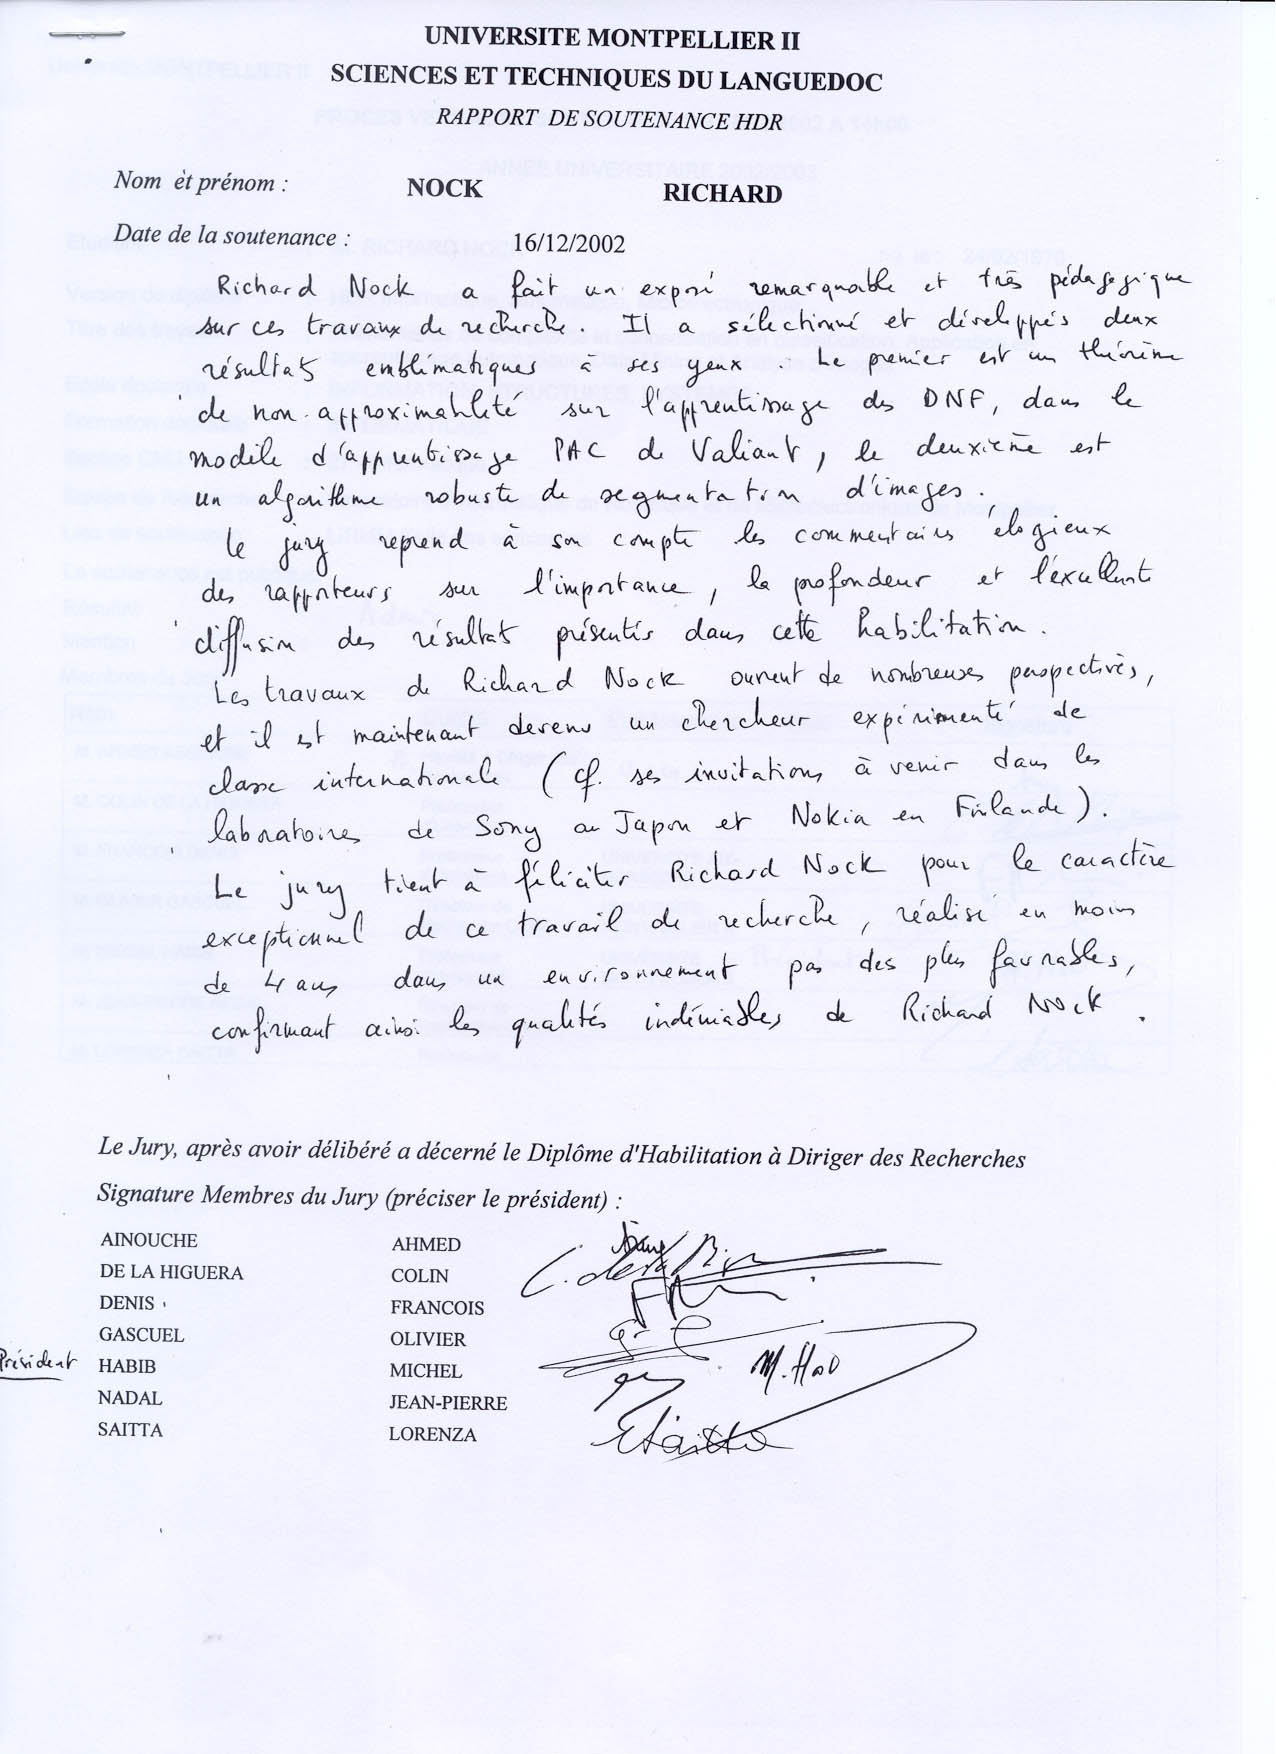 UNIVERSITE MONTPELLIER II
SCIENCES ET TECHNIQUES DU LANGUEDOC
RAPPORT DE SOUTENANCE HDR
Nom èt prénom : NOCK RICHARD
Date de la soutenance : 16/12/2002
Richard Nock a fait un exposé remarquable et très pédagogique
sur ces travaux de recherche. Il a sélectionné et développés deux
résultats emblématiques à ses yeux. Le premier est un théorème
de non-approximabilité sur l'apprentissage des DNF, dans le
modèle d'apprentissage PAC de Valiant, le deuxième est
un algorithme robuste de segmentation d'images.
Le jury reprend à son compte les commentaires élogieux
des rapporteurs sur l'importance, la profondeur et l'excellente
diffusion des résultat présentés dans cette habilitation.
Les travaux de Richard Nock ouvrent de nombreuses perspectives,
et il est maintenant devenu un chercheur expérimenté de
classe internationale (cf. ses invitations à venir dans les
laboratoires de Sony au Japon et Nokia en Finlande).
Le jury tient à féliciter Richard Nock pour le caractère
exceptionnel de ce travail de recherche, réalisé en moins
de 4 ans dans un environnement pas des plus favorables,
confirmant ainsi les qualités indéniables de Richard Nock.
Le Jury, après avoir délibéré a décerné le Diplôme d'Habilitation à Diriger des Recherches
Signature Membres du Jury (préciser le président) :
AINOUCHE AHMED
DE LA HIGUERA COLIN
DENIS FRANCOIS
GASCUEL OLIVIER
Président HABIB MICHEL
NADAL JEAN-PIERRE
SAITTA LORENZA